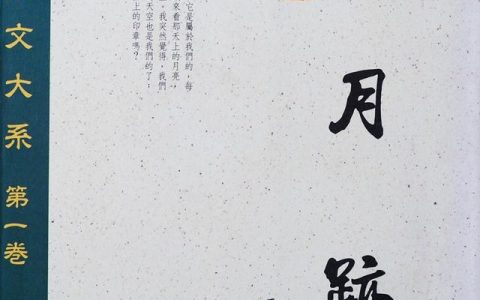 文大系 第一卷
它是屬於我們的，每
來看那天上的月亮，
，我突然覺得，我們
天空也是我們的了：
上的印章嗎？
月跡